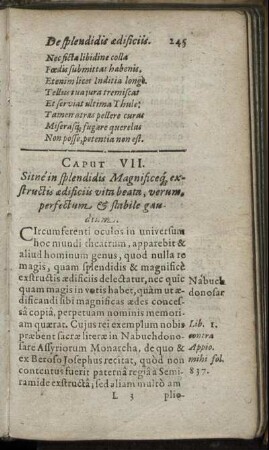 De splendidis ædificiis. 245
Nec ficta libidine colla
Fœdis submittat habenis.
Etenim licet Indica longè
Tellus tua jura tremiscat
Et serviat ultima Thule:
Tamen atras pellere curas
Miserasq; fugare querelas
Non posse, potentia non est.
CAPUT VII.
Sitnè in splendidis Magnificeq; ex-
structis ædificiis vita beata, verum,
perfectum & stabile gau-
dium.
CIrcumferenti oculos in universum
hoc mundi theatrum, apparebit &
aliud hominum genus, quod nulla re
magis, quam splendidis & magnificè
exstructis ædificiis delectatur, nec quic
quam magis in votis habet, quàm ut æ-
dificandi sibi magnificas ædes conces-
sâ copiâ, perpetuam nominis memori-
am quærat. Cujus rei exemplum nobis
præbent sacræ literæ in Nabuchdono-
sare Assyriorum Monarcha, de quo &
ex Beroso Josephus recitat, quòd non
contentus fuerit paternâ regiâ à Semi-
ramide exstructâ, sed aliam multò am
L 3 plio-
Nabuch
donosar
Lib. 1.
contra
Appio.
mihi fol.
837.